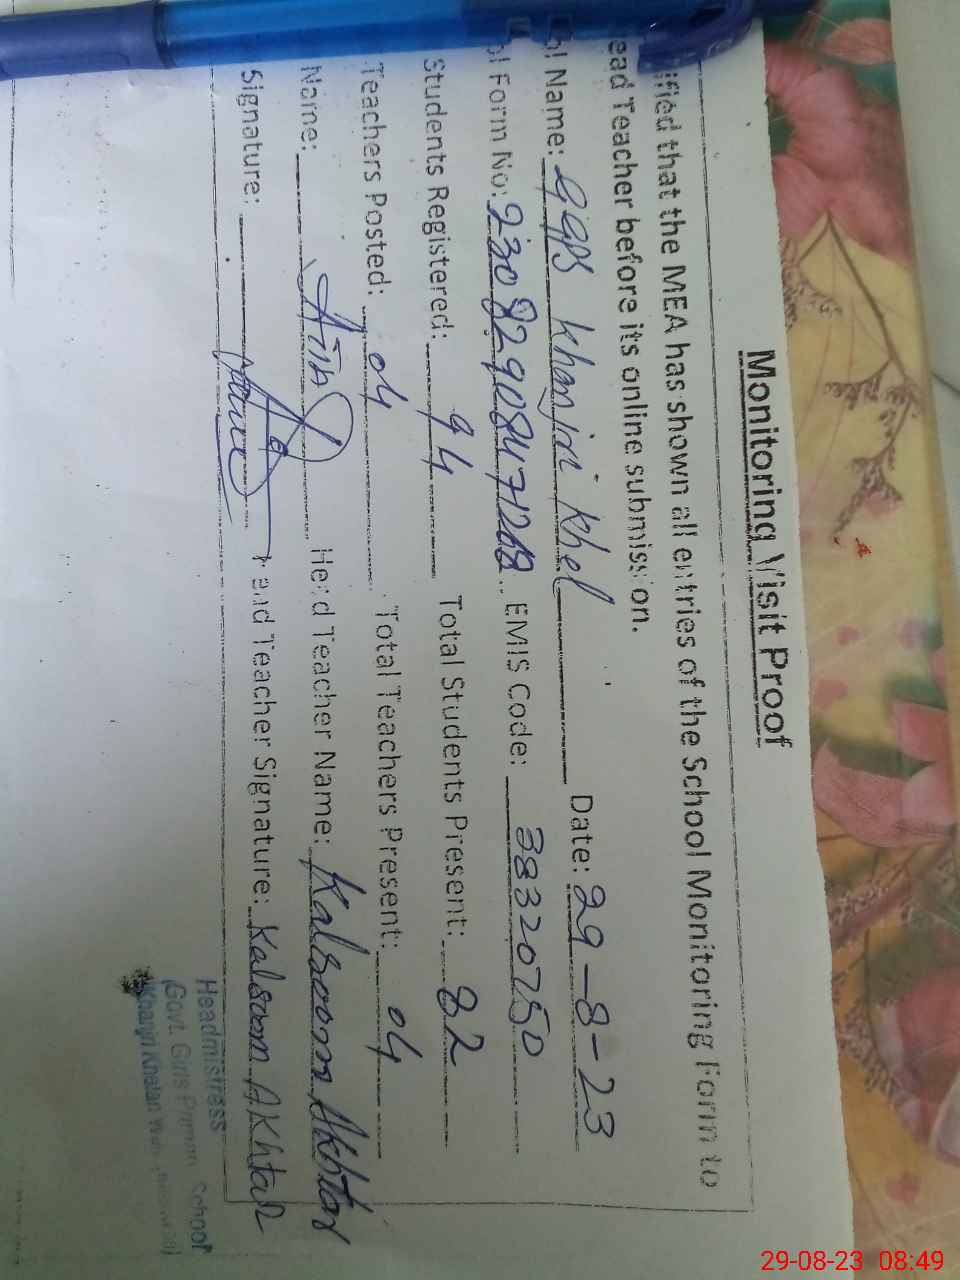 Monitoring Visit Proof
ified that the MEA has shown all entries of the School Monitoring Form to
ead Teacher before its online submission.
ol Name: GGPS Khanjri Khel Date: 29-8-23
ol Form No: EMIS Code: 38320750
Students Registered: 94 Total Students Present: 82
Teachers Posted: 04 Total Teachers Present: 04
Name: Head Teacher Name: Kalsoom Akhtar
Signature: Head Teacher Signature: Kalsoom Akhtar
Headmistress
Govt. Girls Primary School
Khanjri Khelan
29-08-23 08:49